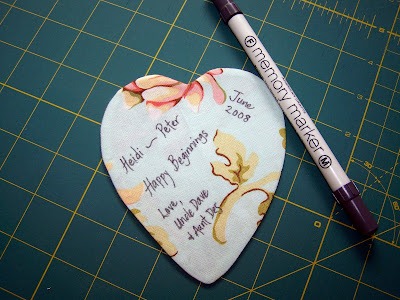 Heidi ~ Peter
June
2008
Happy Beginnings
Love,
Uncle Dave
& Aunt Deb
F memory marker M